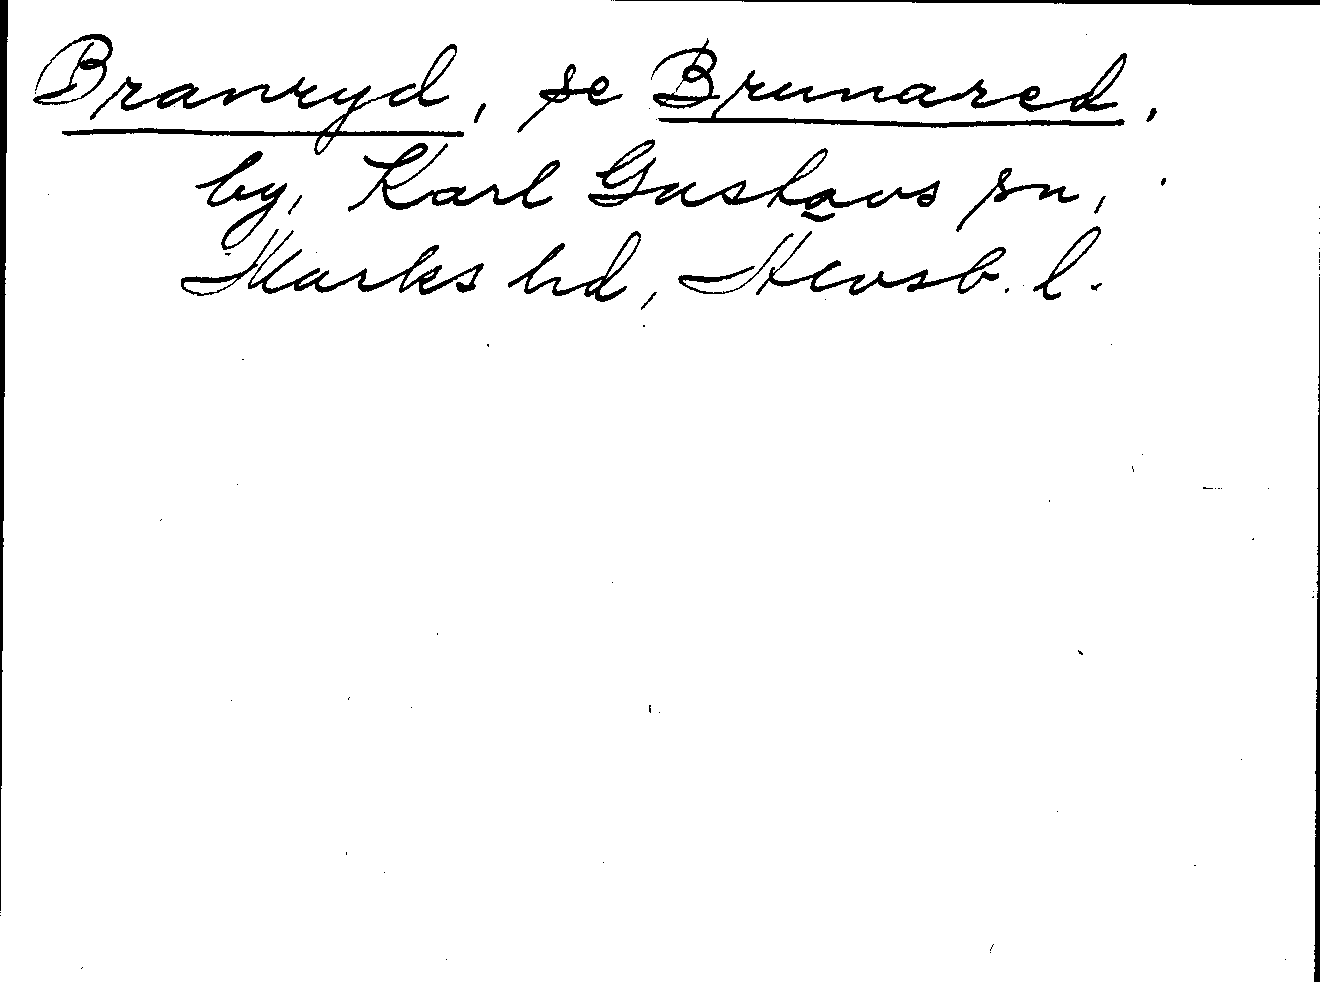 Branryd, se Brunared,
by, Karl Gustavs sn,
Marks hd, Älvsb. l.